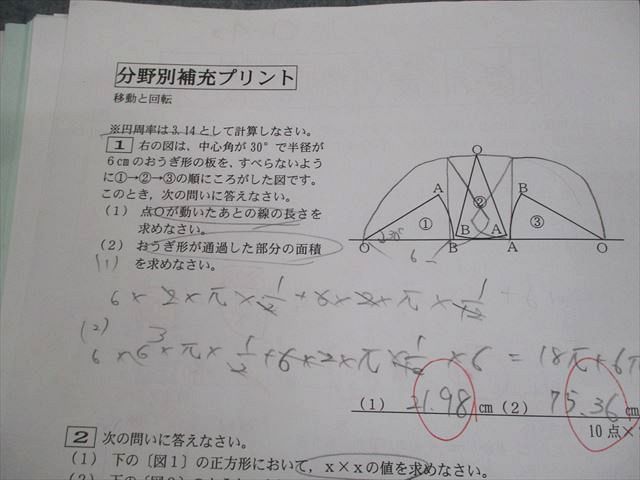 分野別補充プリント
移動と回転
※円周率は3.14として計算しなさい。
1 右の図は、中心角が30°で半径が
6cmのおうぎ形の板を、すべらないよう
に①→②→③の順にころがした図です。
このとき、次の問に答えなさい。
(1) 点Oが動いたあとの線の長さを
求めなさい。
(2) おうぎ形が通過した部分の面積
を求めなさい。
O
A
B
②
①
③
B
A
O
B
A
O
30°
6
(1)
6×2×π×1/2+6×2×π×1/12
(2)
6×6×π×1/2+6×2×π×1/12×6=18π+6π
(1) 21.98 cm (2) 75.36 cm
10点×
2 次の問いに答えなさい。
(1) 下の〔図1〕の正方形において、x×xの値を求めなさい。